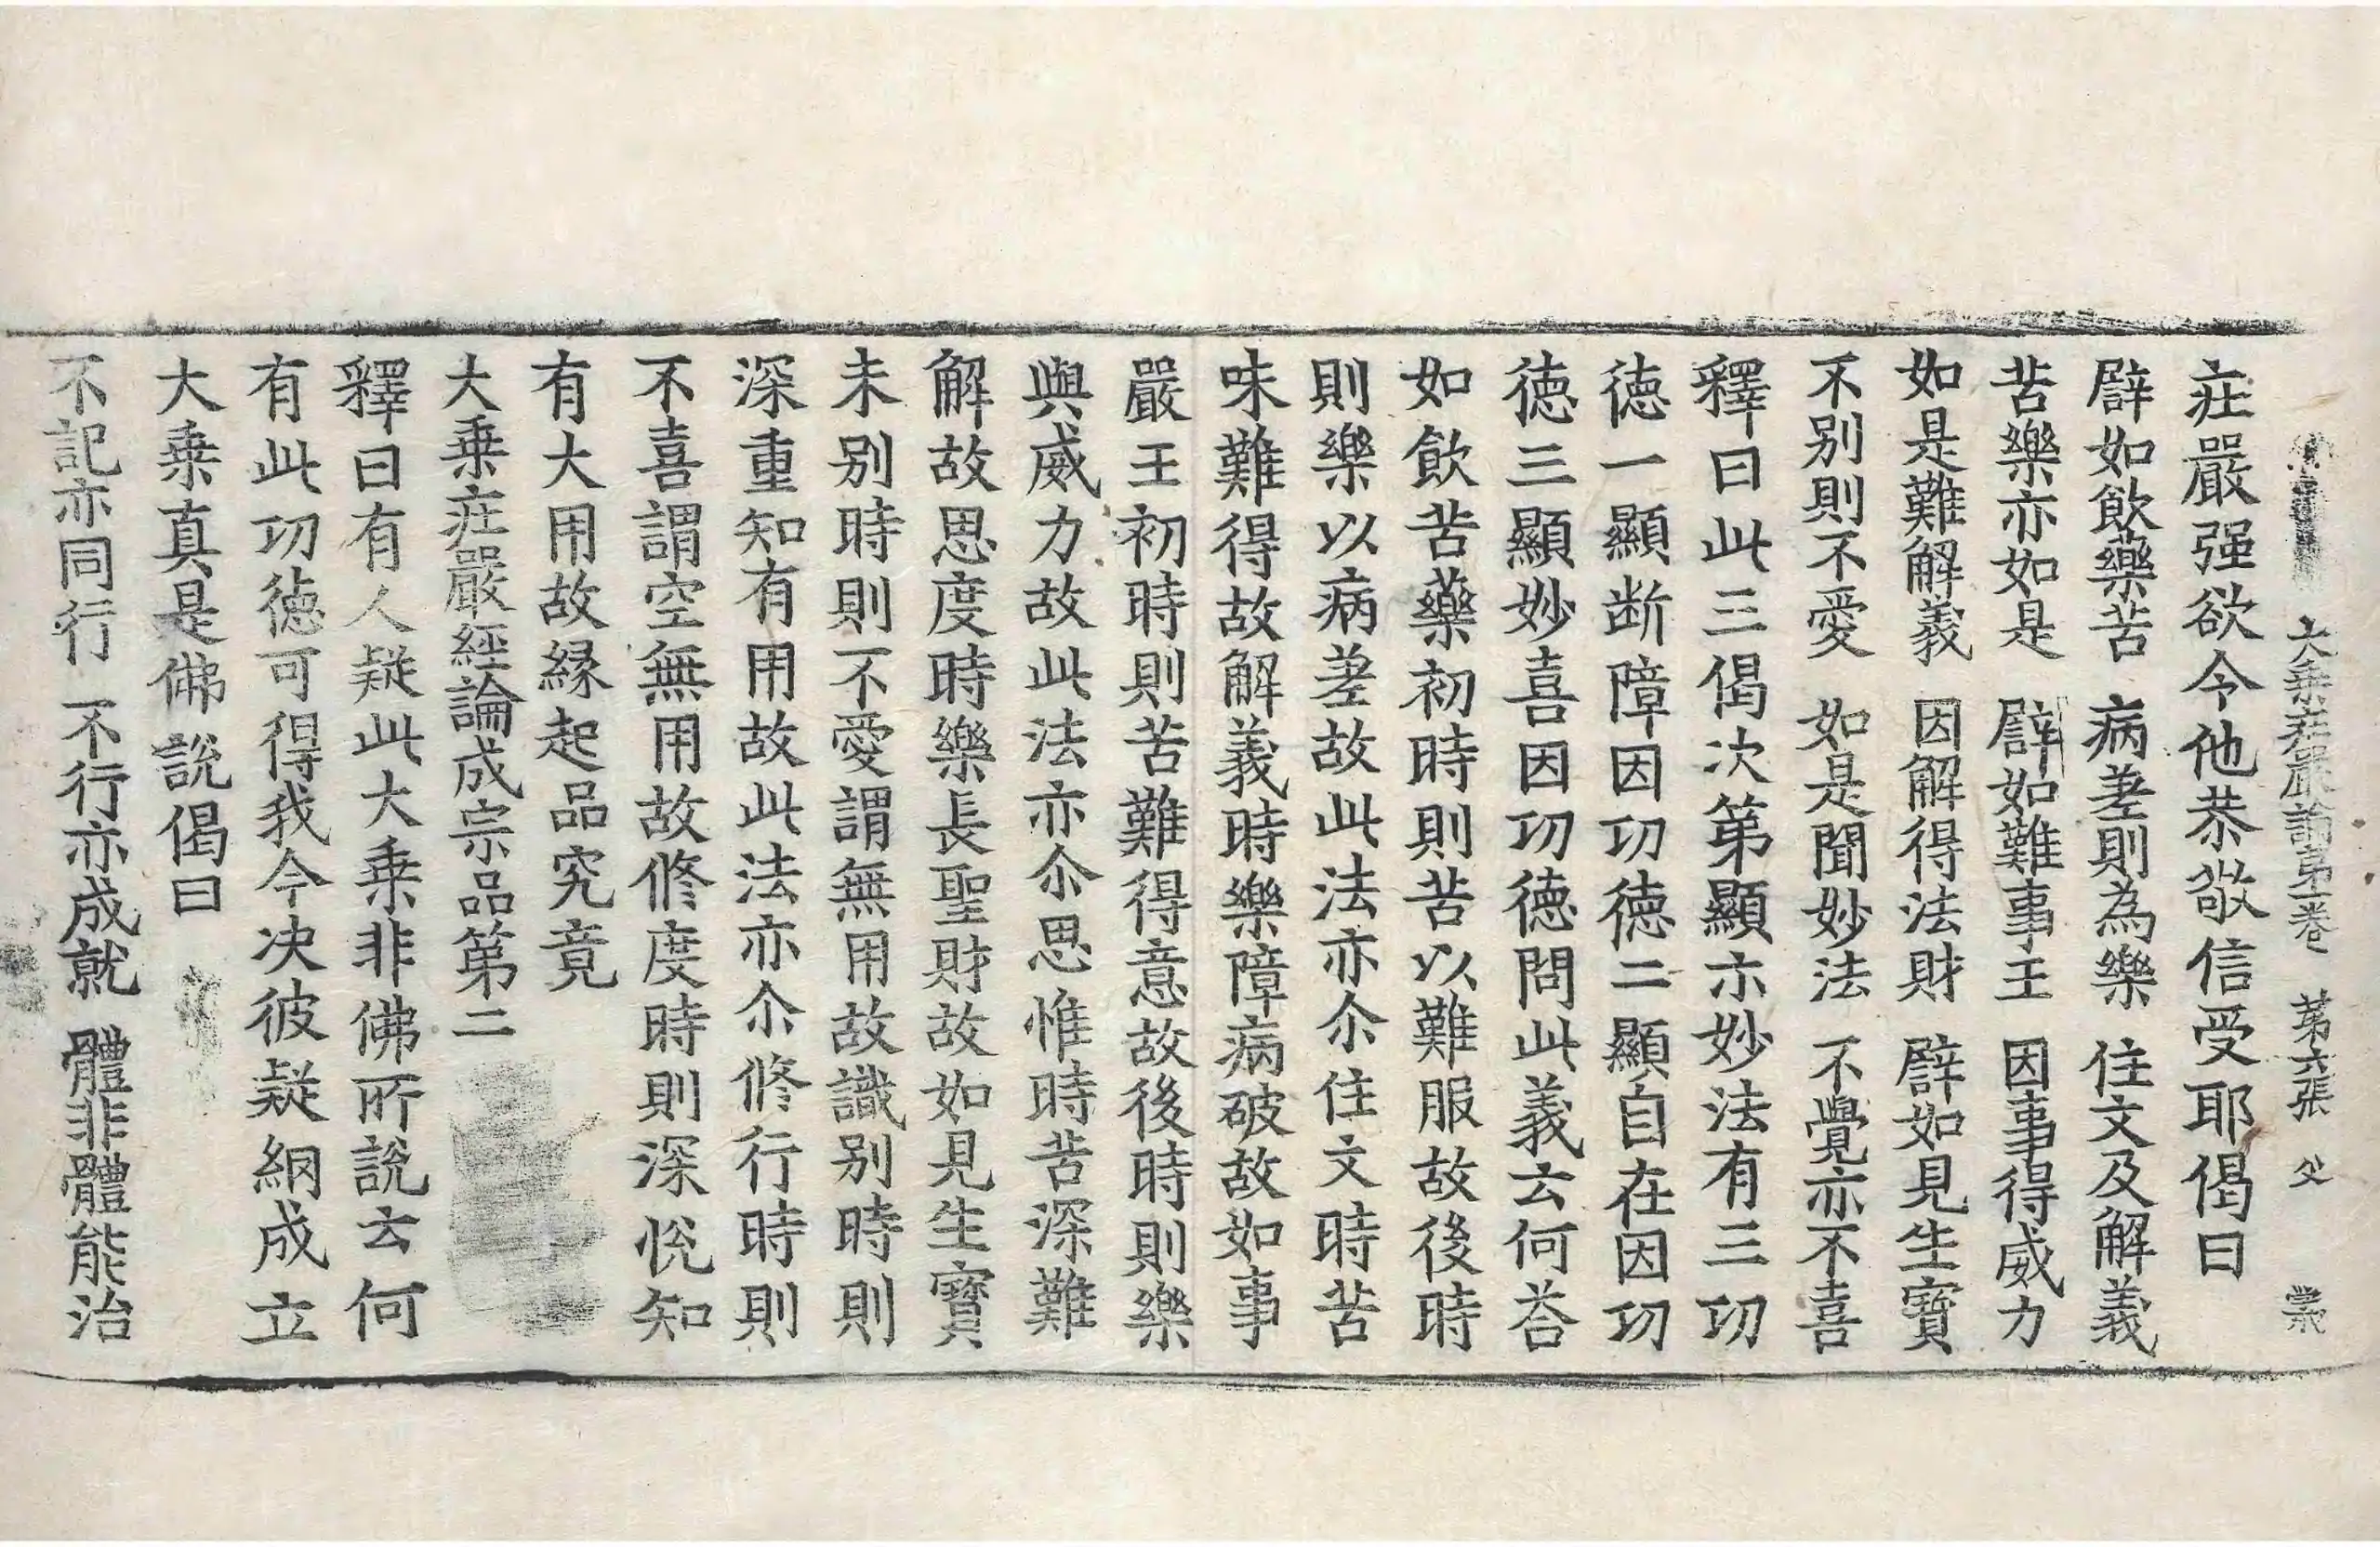 大乗莊嚴論第一卷　第六張　父
莊嚴强欲令他恭敬信受耶偈曰
譬如飲藥苦　病差則為樂　住文及解義
苦樂亦如是　譬如難事王　因事得威力
如是難解義　因解得法財　譬如見生寶
不别則不愛　如是聞妙法　不覺亦不喜
釋曰此三偈次第顯示妙法有三功
徳一顯断障因功徳二顯自在因功
徳三顯妙喜因功徳問此義云何荅
如飲苦藥初時則苦以難服故後時
則樂以病差故此法亦尒住文時苦
味難得故解義時樂障病破故如事
嚴王初時則苦難得意故後時則樂
與威力故此法亦尒思惟時苦深難
解故思度時樂長聖財故如見生寶
未别時則不愛謂無用故識别時則
深重知有用故此法亦尒修行時則
不喜謂空無用故修度時則深恱知
有大用故縁起品究竟
大乗莊嚴經論成宗品第二
釋曰有人疑此大乗非佛所說云何
有此功徳可得我今决彼疑網成立
大乗真是佛說偈曰
不記亦同行　不行亦成就　體非體能治